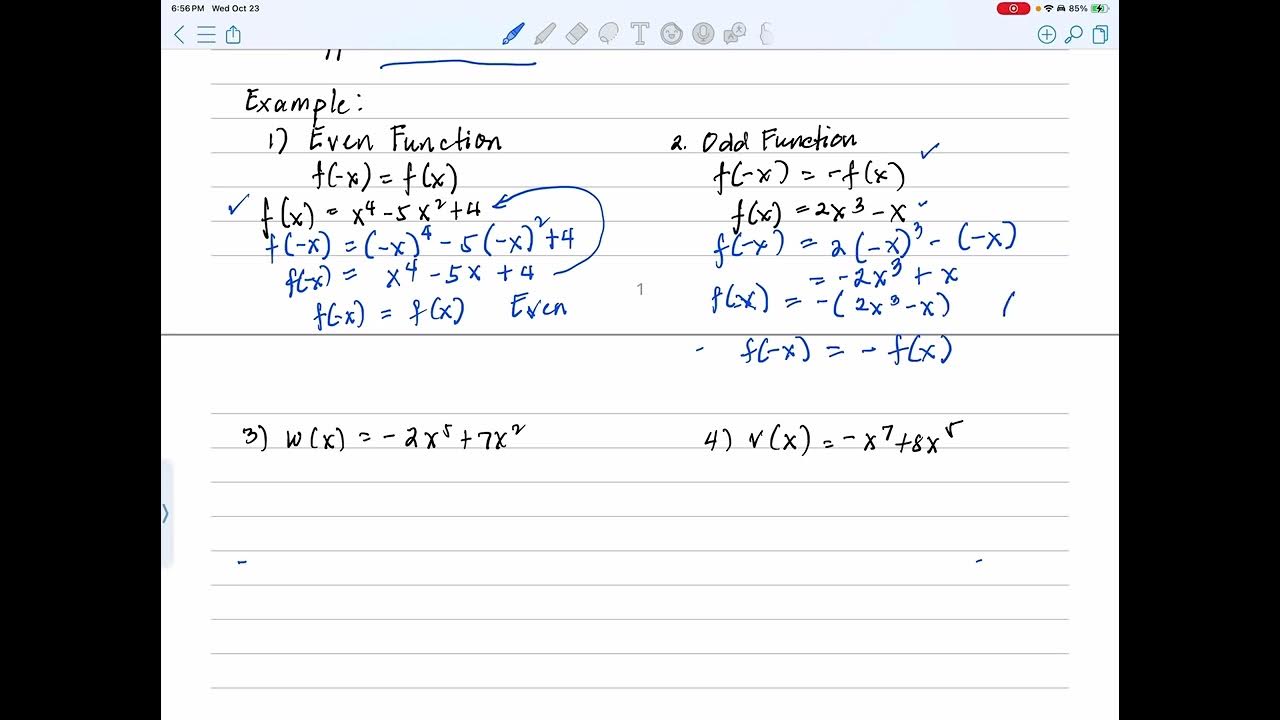 6:56 PM Wed Oct 23
85%
Example:
1) Even Function
f(-x) = f(x)
f(x) = x⁴ - 5x² + 4
f(-x) = (-x)⁴ - 5(-x)² + 4
f(-x) = x⁴ - 5x + 4
f(-x) = f(x) Even
2. Odd Function
f(-x) = -f(x)
f(x) = 2x³ - x
f(-x) = 2(-x)³ - (-x)
= -2x³ + x
f(-x) = -(2x³ - x) (
f(-x) = - f(x)
1
3) w(x) = - 2x⁵ + 7x²
4) v(x) = - x⁷ + 8x⁵